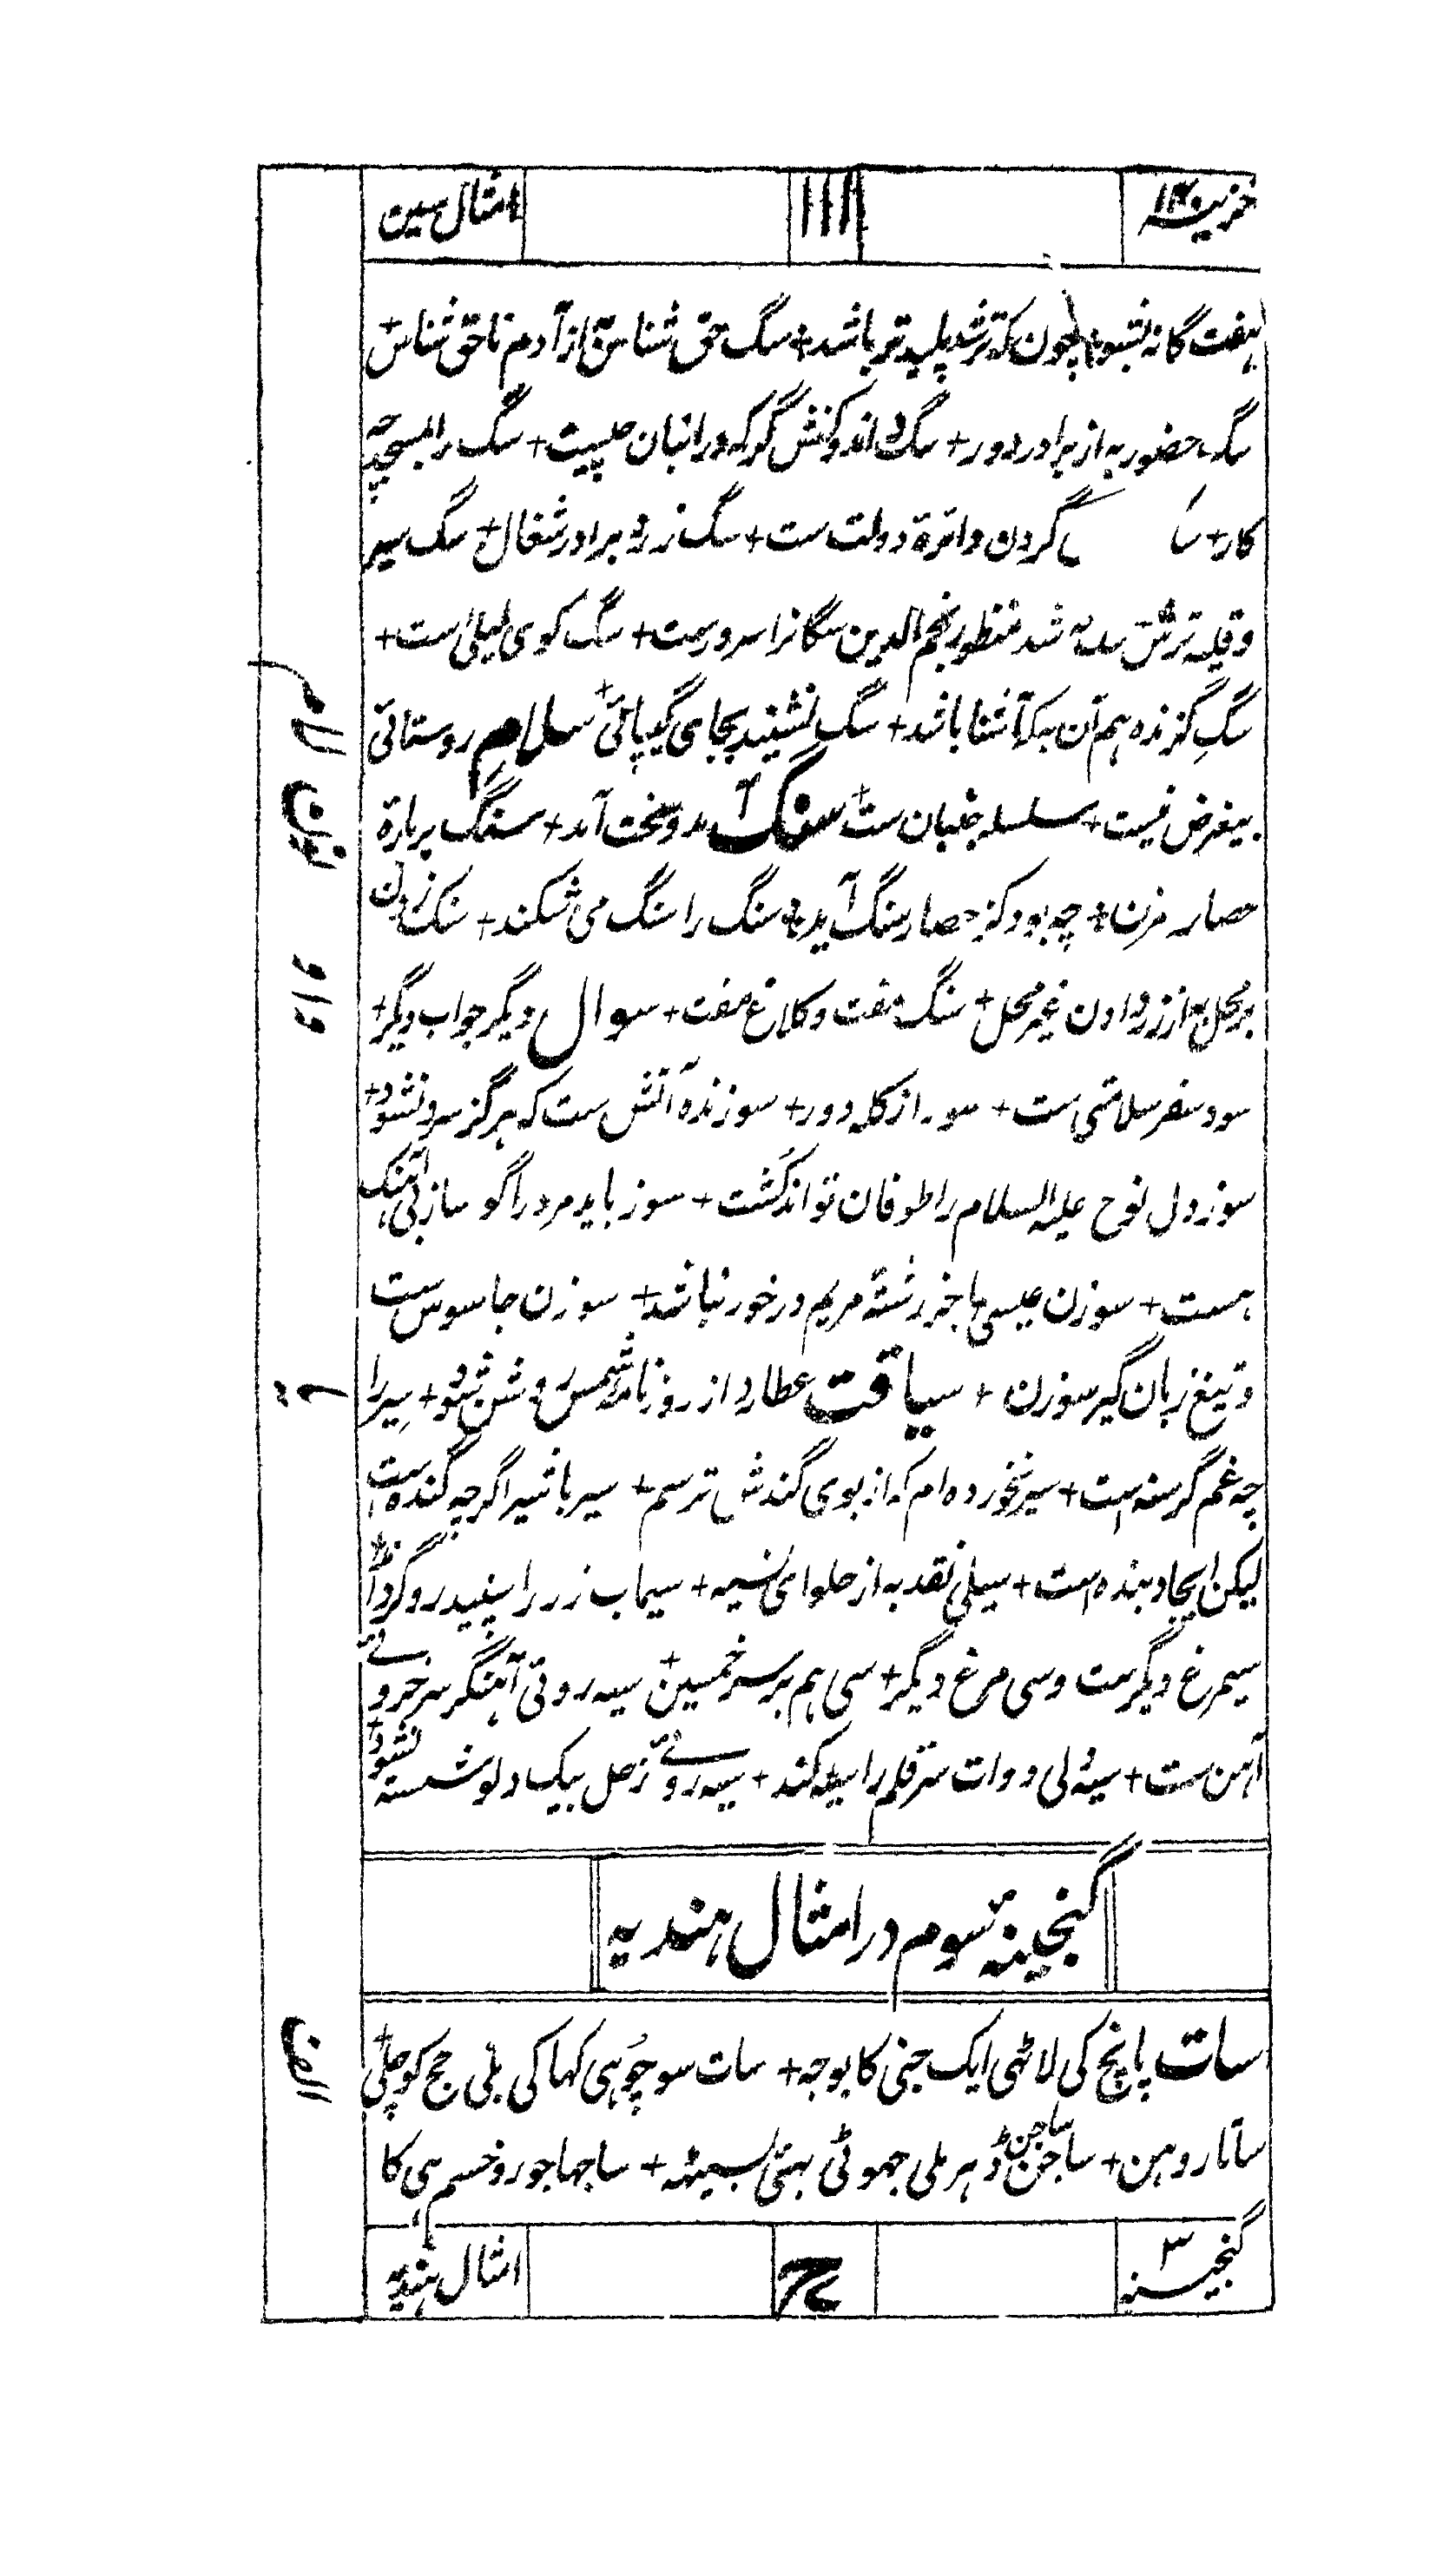 خزینہ ۱۲
۱۱۱
امثال سین
ہفت گانہ بشو + چون کہ تر شد پلید تر باشد + سگ حق شناس بہ از آدم ناحق شناس +
سگ حضور بہ از برادر دور + سگ داند و کفش گر کہ در انبان چیست + سگ را بمسجد چہ
کار + گردن دائرۂ دولت ست + سگ زرد برادر شغال + سگ سیر
و قلیہ ترش شد منظور نجم الدین سگانرا سرورست + سگ کوی لیلیٰ ست +
سگِ گزندہ ہم آن بہ کہ آشنا باشد + سگ نشیند بجای گیپائی + سلامِ روستائی
بیغرض نیست + سلسلہ جنبان ست + سنگ آمد و سخت آمد + سنگ بر بارۂ
حصار مزن + چہ بود کز حصار سنگ آید + سنگ را سنگ می شکند + سنگ زدن
بر محل بہ از زر دادن غیر محل + سنگ مفت و کلاغ مفت + سوال دیگر جواب دیگر +
سود سفر سلامتی ست + سور از گلہ دور + سوزندہ آتش ست کہ ہرگز سرد نشود +
سوز دل نوح علیہ السلام را طوفان تواند کشت + سوز باید مرد را گو ساز بی آہنگ
ہست + سوزن عیسیٰ را جز رشتۂ مریم در خور نباشد + سوزن جاسوس ست
و تیغ زبان گیر سوزن + سیاقت عطارد از روزنامۂ شمس روشن شود + سیر را
چہ غم گرسنہ است + سیر نخوردہ ام کہ از بوی گندش ترسم + سیر باشیر اگرچہ گندہ است
لیکن ایجاد بندہ ست + سیلی نقد بہ از حلوای نسیہ + سیماب زر را سپید رو گرداند +
سیمرغ دیگرست و سی مرغ دیگر + سی ہم بر سر خمسین + سیہ روئی آہنگر سرخ روئے
آہن ست + سیہ دلی دوات سر قلم را سیہ کند + سیہ روئے زحل بیک دلو شستہ نشود +
لام
نون
واو
ے
گنجینۂ سوم در امثال ہندیہ
سات پانچ کی لاٹھی ایک جنی کا بوجہ + سات سو چوہی کہا کی بلی حج کو چلی +
ساتا روہن + ساجن ساجن مل جہوٹی بہئی بسیٹہ + ساجہا جورو خسم ہی کا
الف
گنجینہ ۳
ج
امثال ہندیہ